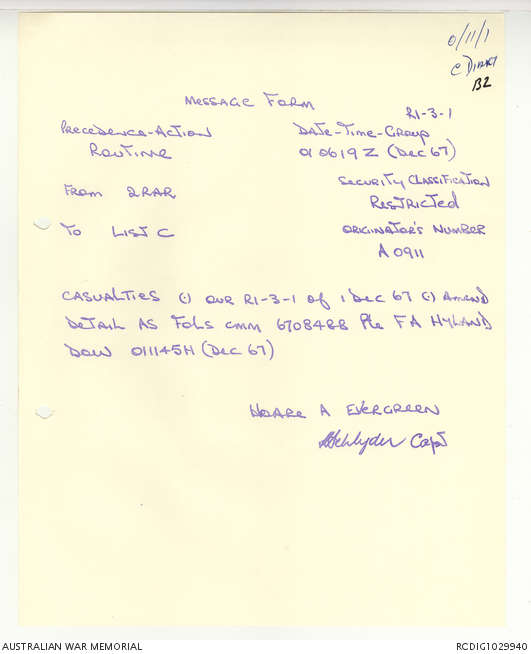 0/11/1
C DIARY
B2
MESSAGE FORM
R1-3-1
PRECEDENCE-ACTION
DATE-TIME-GROUP
ROUTINE
010619Z (DEC 67)
SECURITY CLASSIFICATION
FROM 2RAR
RESTRICTED
TO LIST C
ORIGINATOR'S NUMBER
A 0911
CASUALTIES (.) OUR R1-3-1 OF 1 DEC 67 (.) AMEND
DETAIL AS FOLS CMM 6708488 Pte F A HYLAND
DOW 011145H (DEC 67)
A EVERGREEN
Capt
AUSTRALIAN WAR MEMORIAL
RCDIG1029940